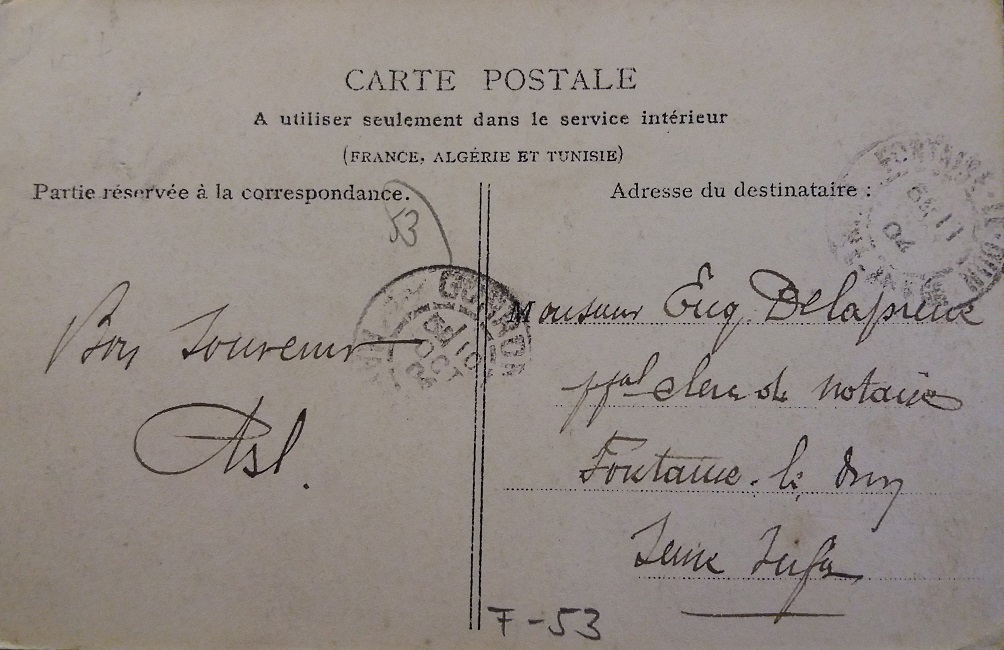 CARTE POSTALE
A utiliser seulement dans le service intérieur
(FRANCE, ALGÉRIE ET TUNISIE)
Partie réservée à la correspondance.
Adresse du destinataire :
53
Bon Souvenir
Monsieur Eug. Delapreux
ppal clerc de notaire
Fontaine-le Dun
Seine Infre
FONTAINE-LE-DUN
11
04
10
OCT
04
F-53